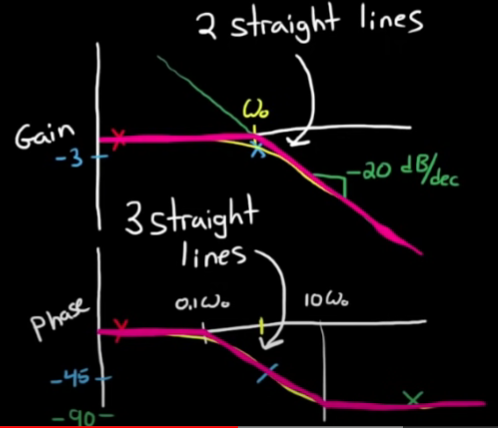 2 straight lines
ω₀
Gain
-3
-20 dB/dec
3 straight
lines
Phase
0.1ω₀
10ω₀
-45
-90